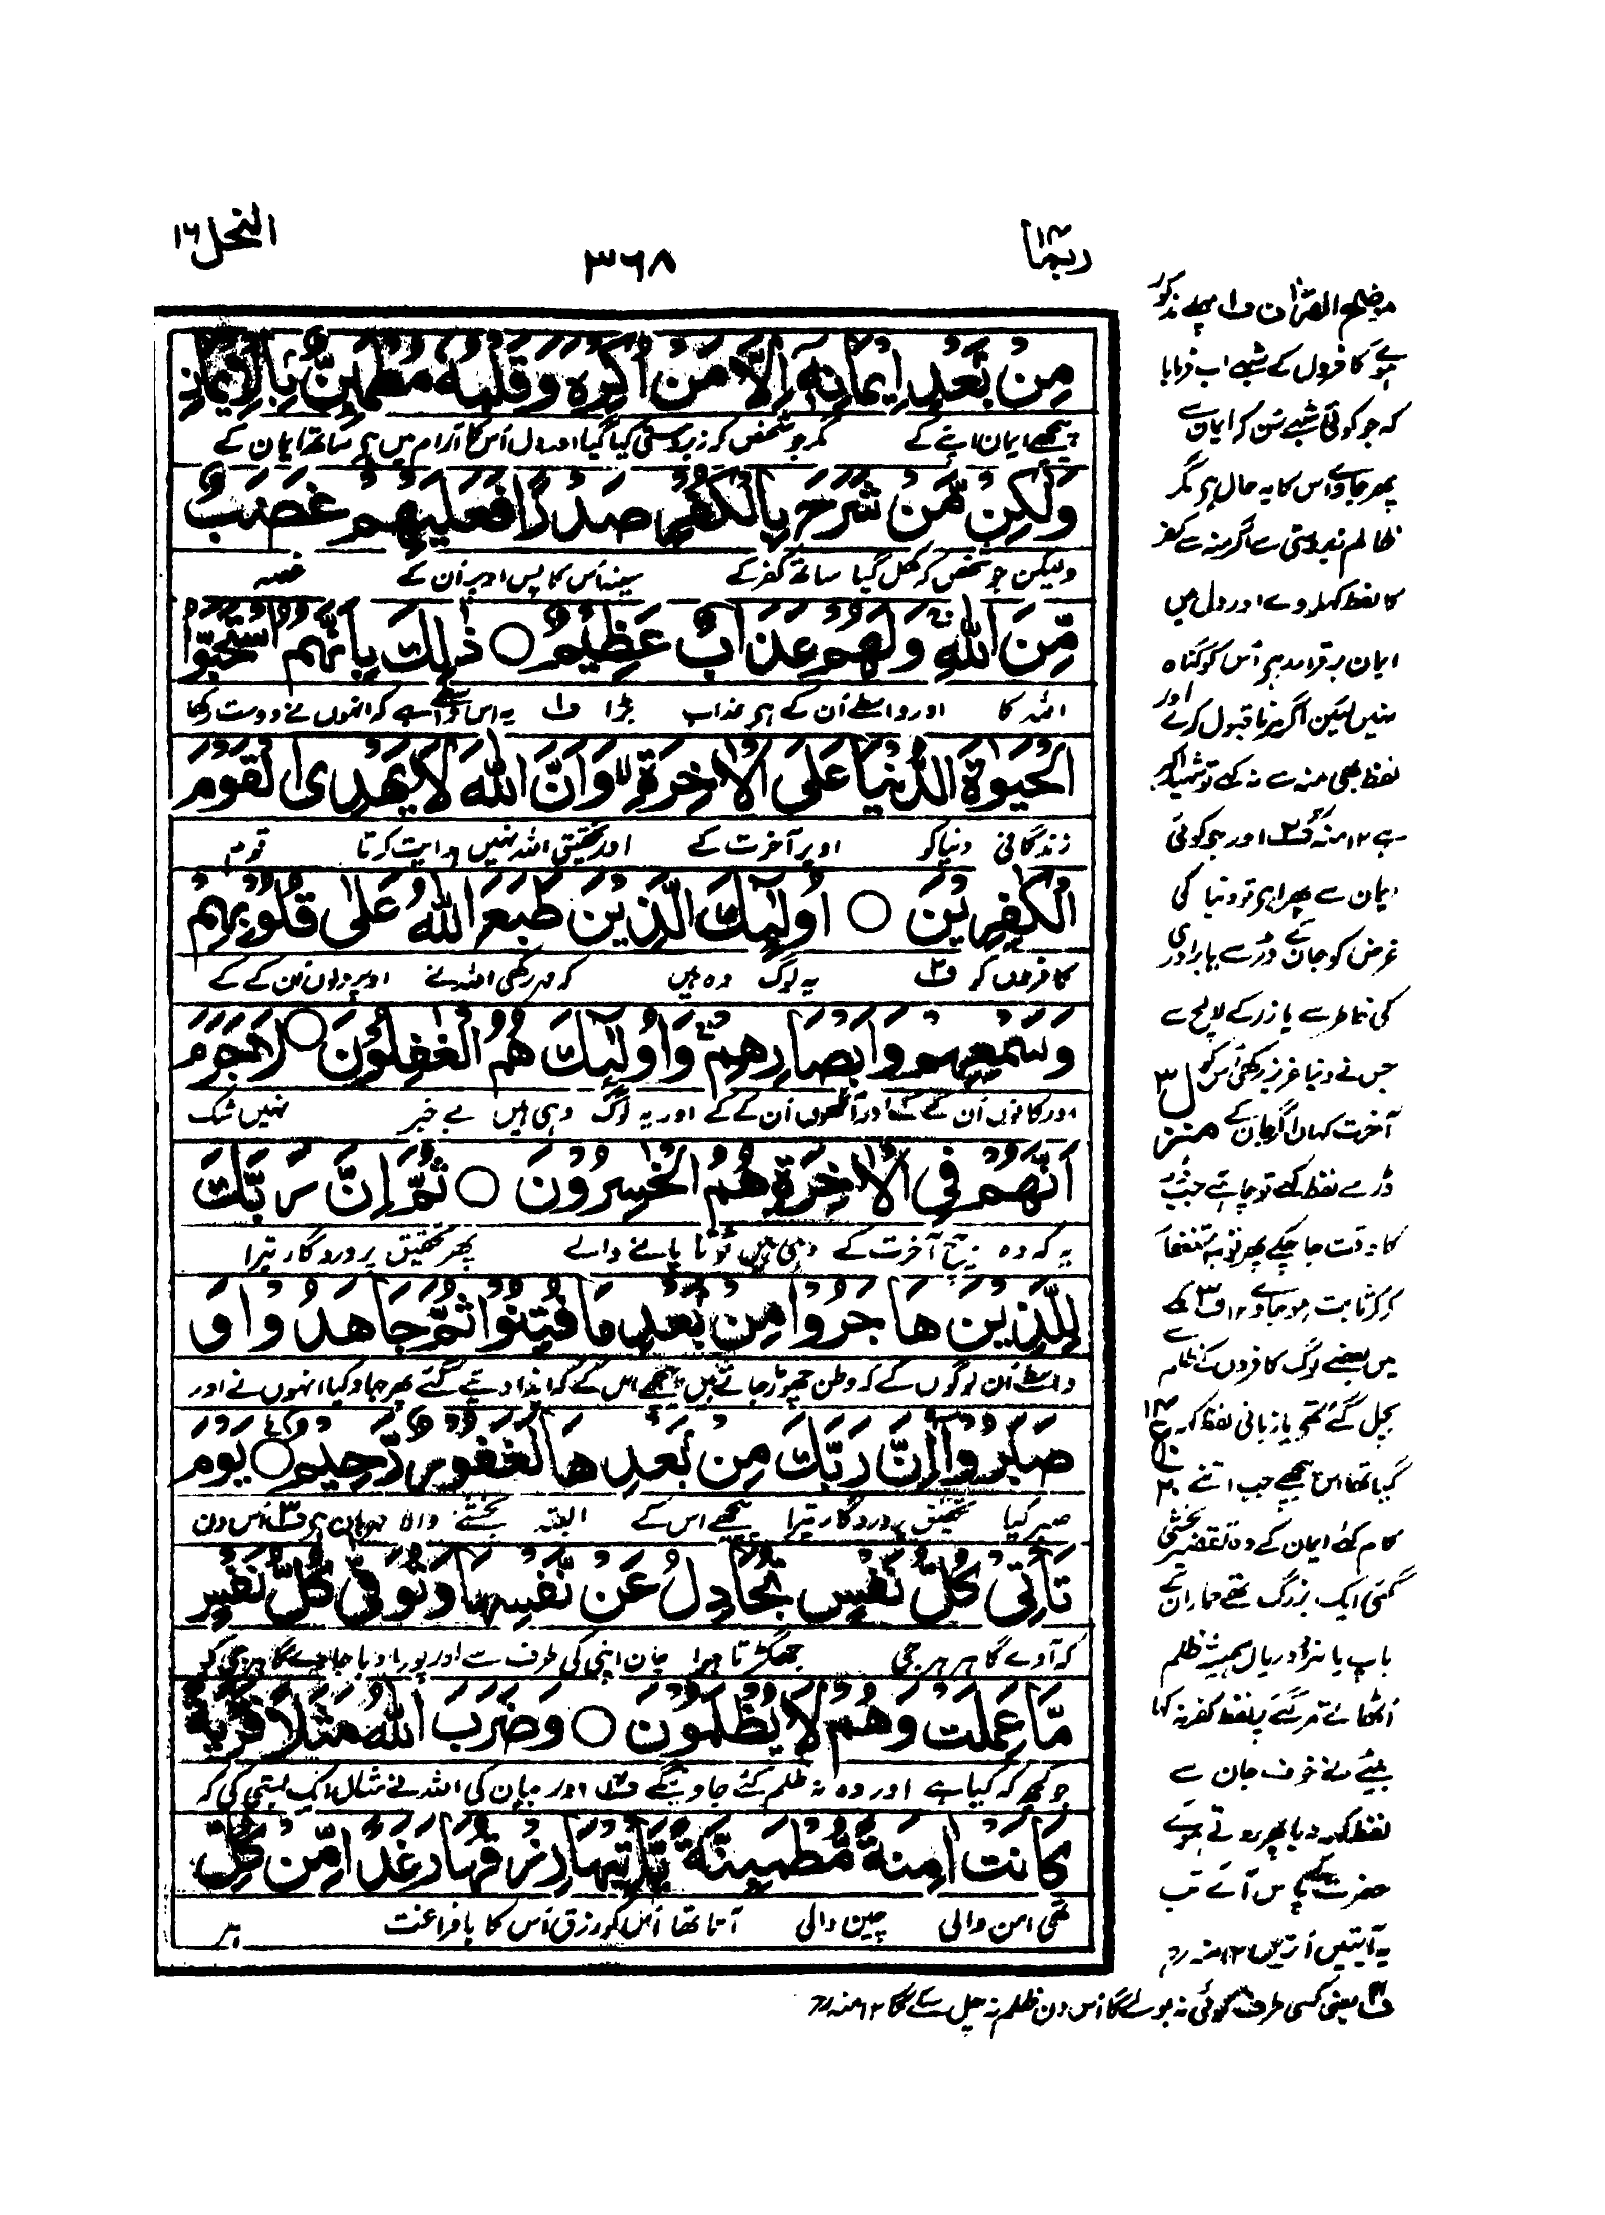 ربما ۱۴
۳۶۸
النحل ۱۶
مِنْ بَعْدِ اِیْمَانِهٖۤ اِلَّا مَنْ اُكْرِهَ وَ قَلْبُهٗ مُطْمَىِٕنٌّۢ بِالْاِیْمَانِ
پیچھے ایمان اپنے کے مگر جو شخص کہ زبردستی کیا گیا اور دل اُس کا آرام میں ہی ساتھ ایمان کے
وَلٰكِنْ مَّنْ شَرَحَ بِالْكُفْرِ صَدْرًا فَعَلَیْهِمْ غَضَبٌ
ولیکن جو شخص کہ کھل گیا ساتھ کفر کے سینہ اُس کا پس اوپر اُن کے غصہ
مِّنَ اللّٰهِ ۚ وَلَهُمْ عَذَابٌ عَظِیْمٌ ○ ذٰلِكَ بِاَنَّهُمُ اسْتَحَبُّوا
اللہ کا اور واسطے اُن کے ہی عذاب بڑا ف۱ یہ اس واسطے ہے کہ انہوں نے دوست رکھا
الْحَیٰوةَ الدُّنْیَا عَلَى الْاٰخِرَةِ ۙ وَاَنَّ اللّٰهَ لَا یَهْدِی الْقَوْمَ
زندگانی دنیا کو اوپر آخرت کے اور تحقیق اللہ نہیں ہدایت کرتا قوم
الْكٰفِرِیْنَ ○ اُولٰٓىِٕكَ الَّذِیْنَ طَبَعَ اللّٰهُ عَلٰى قُلُوْبِهِمْ
کافروں کو ف۲ یہ لوگ وہ ہیں کہ مہر رکھی اللہ نے اوپر دلوں اُن کے کے
وَسَمْعِهِمْ وَاَبْصَارِهِمْ ۚ وَاُولٰٓىِٕكَ هُمُ الْغٰفِلُوْنَ ○ لَا جَرَمَ
اور کانوں اُن کے کے اور آنکھوں اُن کے کے اور یہ لوگ وہی ہیں بے خبر نہیں شک
اَنَّهُمْ فِی الْاٰخِرَةِ هُمُ الْخٰسِرُوْنَ ○ ثُمَّ اِنَّ رَبَّكَ
یہ کہ وہ بیچ آخرت کے وہی ہیں ٹوٹا پانے والے پھر تحقیق پروردگار تیرا
لِلَّذِیْنَ هَاجَرُوْا مِنْۢ بَعْدِ مَا فُتِنُوْا ثُمَّ جَاهَدُوْا وَ
واسطے اُن لوگوں کے کہ وطن چھوڑ جاتے ہیں پیچھے اس کے کہ ایذا دیے گئے پھر جہاد کیا انہوں نے اور
صَبَرُوْۤا اِنَّ رَبَّكَ مِنْۢ بَعْدِهَا لَغَفُوْرٌ رَّحِیْمٌ ○ یَوْمَ
صبر کیا تحقیق پروردگار تیرا پیچھے اس کے البتہ بخشنے والا مہربان ہی ف۳ اُس دن
تَاْتِیْ كُلُّ نَفْسٍ تُجَادِلُ عَنْ نَّفْسِهَا وَتُوَفّٰى كُلُّ نَفْسٍ
کہ آوے گا ہر ہر جی جھگڑتا ہوا جان اپنی کی طرف سے اور پورا دیا جاوے گا ہر جی کو
مَّا عَمِلَتْ وَهُمْ لَا یُظْلَمُوْنَ ○ وَضَرَبَ اللّٰهُ مَثَلًا قَرْیَةً
جو کچھ کہ کیا ہے اور وہ نہ ظلم کئے جاوینگے ف۴ اور بیان کی اللہ نے مثال ایک بستی کی کہ
كَانَتْ اٰمِنَةً مُّطْمَىِٕنَّةً یَّاْتِیْهَا رِزْقُهَا رَغَدًا مِّنْ كُلِّ
تھی امن والی چین والی آتا تھا اُس کو رزق اُس کا بافراغت ہر
موضح القرآن ف۱ پہلے مذکور
ہوئے کافروں کے شبہے اب فرمایا
کہ جو کوئی شبہے سُن کر ایمان سے
پھر جاوے اس کا یہ حال ہی مگر
ظالم زبردستی سے اگر منہ سے کفر
کا لفظ کہلاوے اور دل میں
ایمان برقرار ہی اُس کو گناہ
نہیں لیکن اگر مرنا قبول کرے اور
لفظ بھی منہ سے نہ کہے تو شہید اکبر
ہے ۱۲ منہ رح ف۲ اور جو کوئی
ایمان سے پھرا ہی تو دنیا کی
غرض کو جان کے ڈر سے یا برادری
کی خاطر سے یا زر کے لالچ سے
جس نے دنیا عزیز رکھی اُس کو
آخرت کہاں اگر جان کے
ڈر سے لفظ کہے تو چاہیے جب ڈر
کا وقت جا چکے پھر توبہ استغفار
کر کر ثابت ہو جاوے ۱۲ ف۳ مکہ
میں بعضے لوگ کافروں کے ظلم سے
بچل گئے تھے یا زبانی لفظ کہہ
گیا تھا اس پیچھے جب اتنے
کام کئے ایمان کے وہ تقصیر بخشی
گئی ایک بزرگ تھے عمار ان کے
باپ یاسر اور ماں سمیہ ظلم
اُٹھاتے مر گئے پر لفظ کفر نہ کہا
بیٹے نے خوف جان سے
لفظ کہہ دیا پھر روتے ہوئے
حضرت کے پاس آئے تب
یہ آیتیں اُتریں ۱۲ منہ رح
ف۴ یعنی کسی طرف کوئی نہ بولے گا اُس دن ظلم نہ چل سکے گا ۱۲ منہ رح